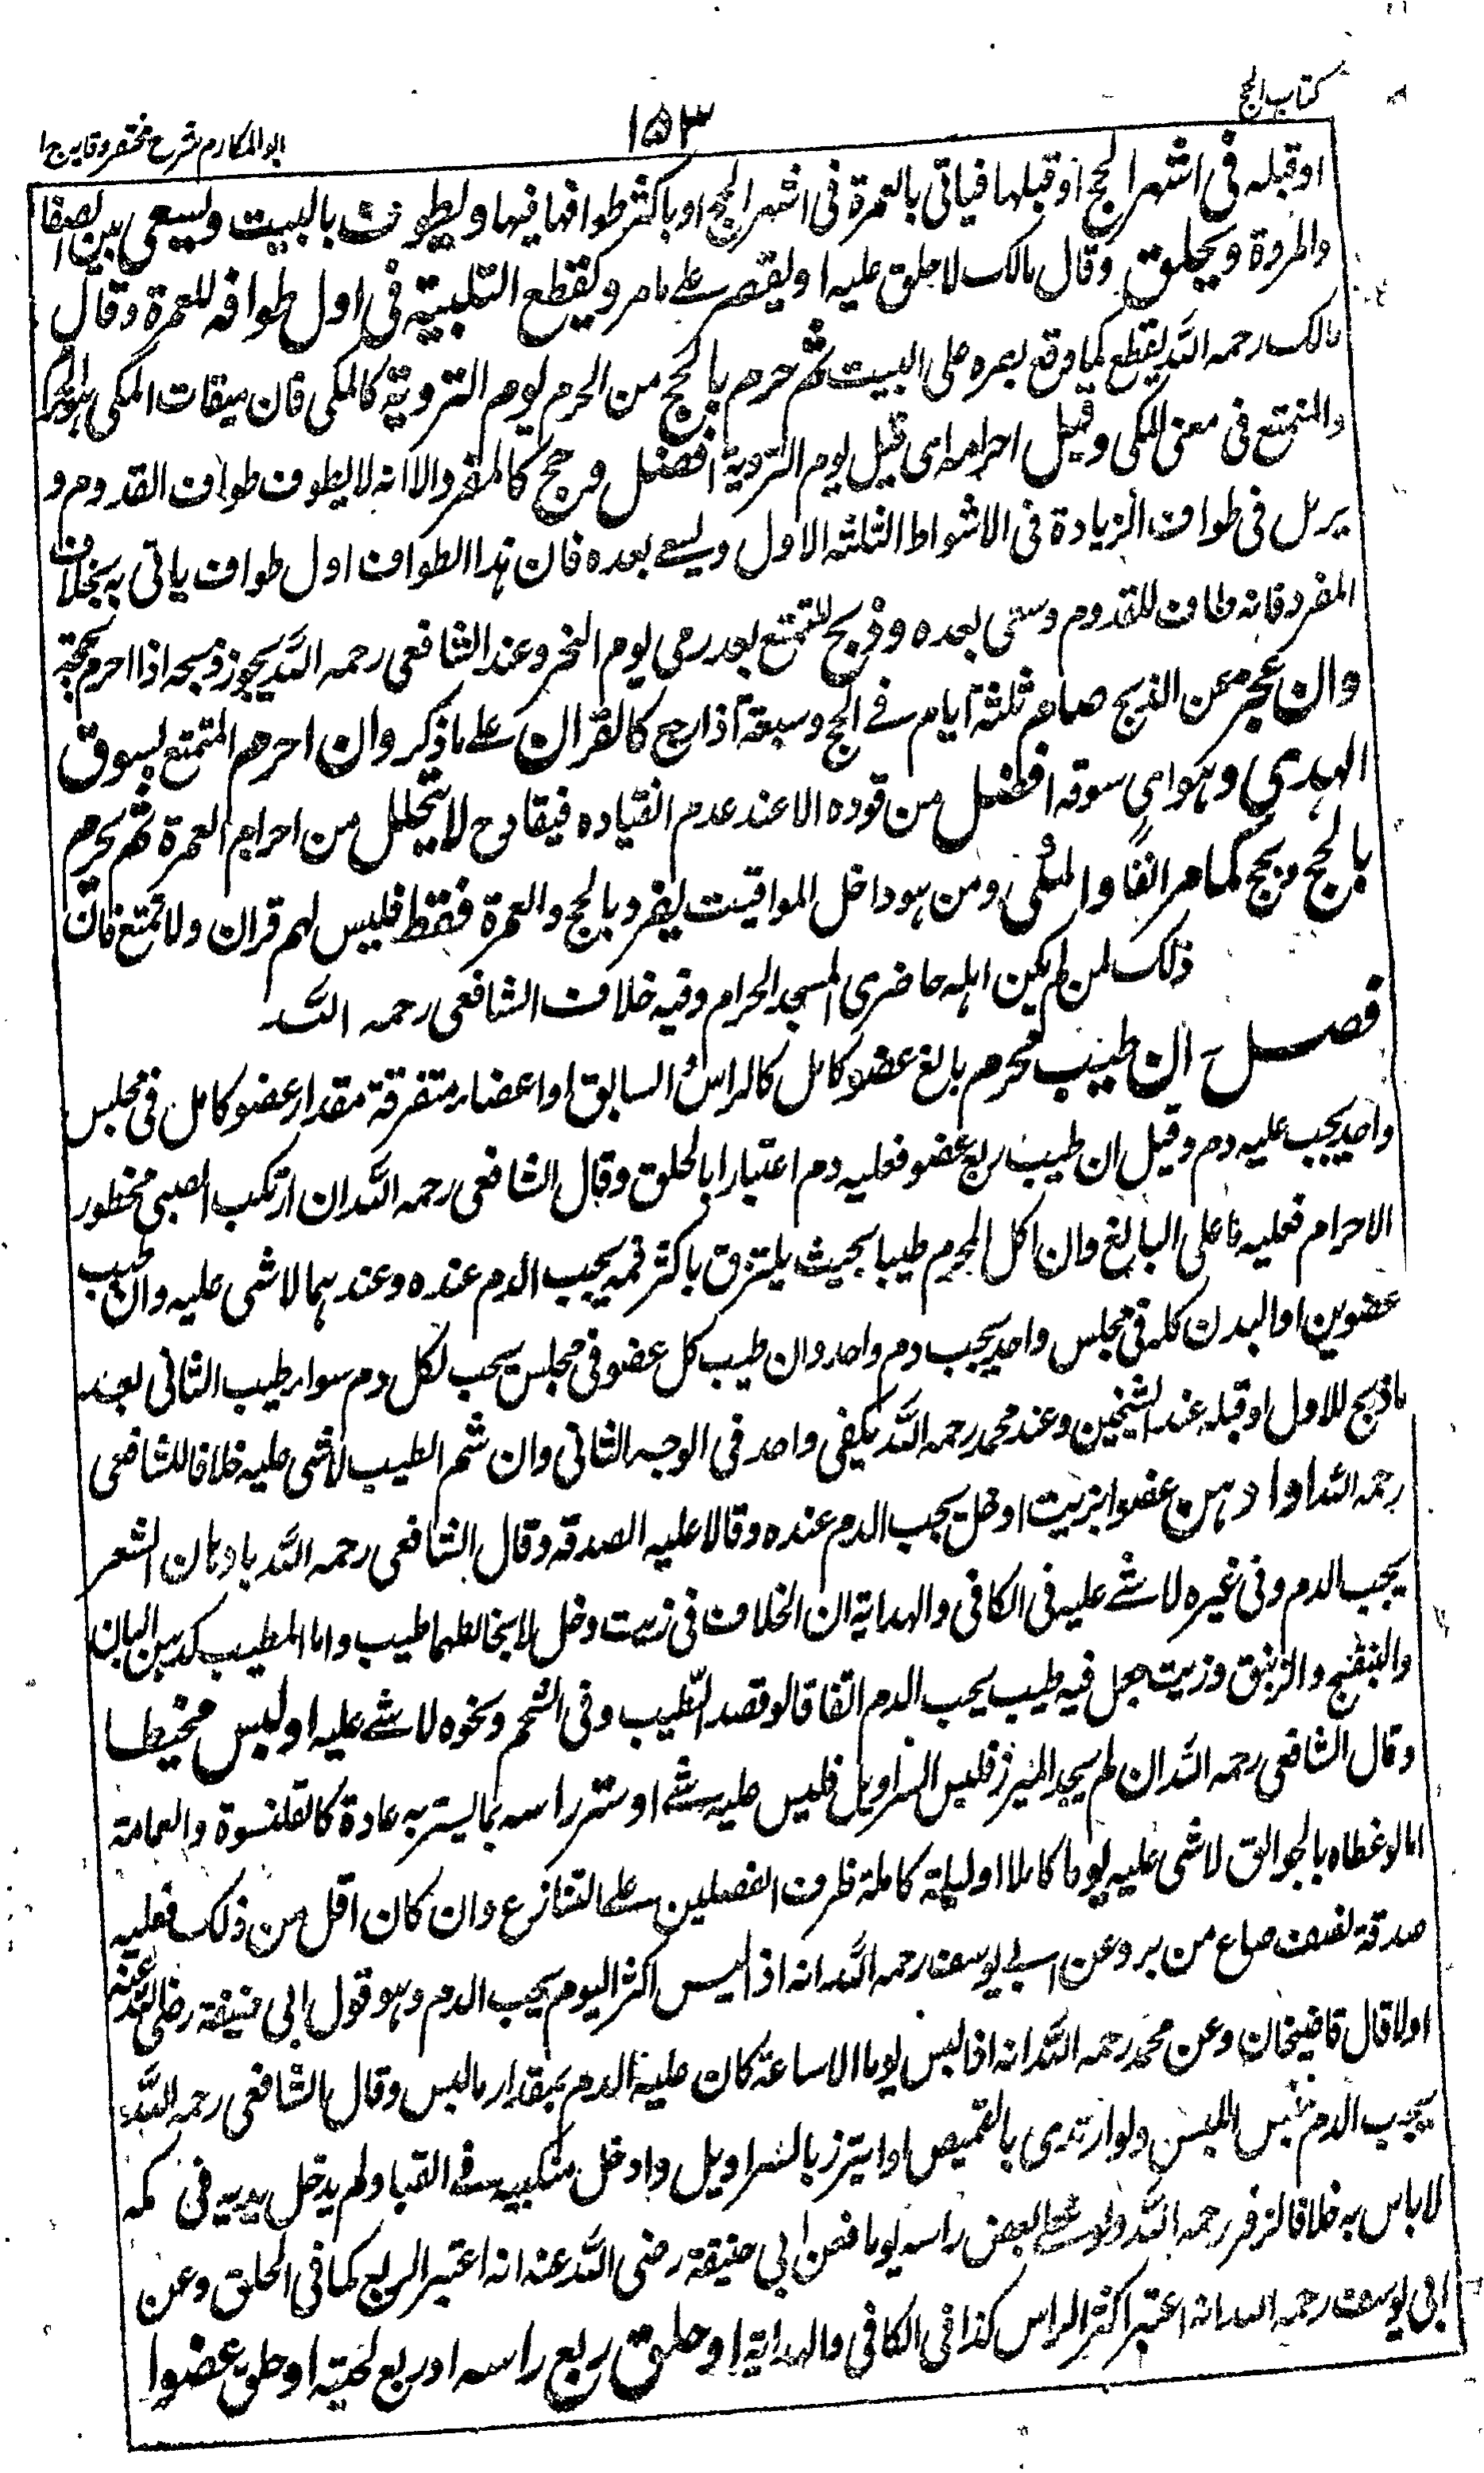 كتاب الحج
١٥٣
ابو المكارم شرح مختصر وقايه ج ١
او قبله فى اشهر الحج او قبلها فياتى بالعمرة فى اشهر الحج او باكثر طوافها فيها ويطوف بالبيت ويسعى بين الصفا
والمروة ويحلق وقال مالك لا حلق عليه او يقصر على ما مر ويقطع التلبية فى اول طوافه للعمرة وقال
مالك رحمه الله يقطع كما وقع بصره على البيت ثم حرم بالحج من الحرم يوم التروية كالمكى فان ميقات المكى هو الحرم
والمتمتع فى معنى المكى وقيل احرامه اى قبل يوم التروية افضل وحج كالمفرد الا انه لا يطوف طواف القدوم و
يرمل فى طواف الزيادة فى الاشواط الثلثه الاول ويسعى بعده فان هذا الطواف اول طواف ياتى به بخلاف
المفرد فانه طاف للقدوم وسعى بعده وذبح للتمتع بعد رمى يوم النحر وعند الشافعى رحمه الله يجوز ذبحه اذا احرم بحجة
وان عجز عن الذبح صام ثلثة ايام فى الحج وسبعة اذا رجع كالقران على ما ذكر وان احرم المتمتع بسوق
الهدى وهو اى سوقه افضل من قوده الا عند عدم انقياده فيقاد ح لا يتحلل من احرام العمرة ثم يحرم
بالحج ويحج كما مر انفا والمكى ومن هو داخل المواقيت يفرد بالحج والعمرة فقط فليس لهم قران ولا تمتع فان
ذلك لمن لم يكن اهله حاضرى المسجد الحرام وفيه خلاف الشافعى رحمه الله
فصل ان طيب محرم بالغ عضو كامل كالراس والساق او اعضاء متفرقة مقدار عضو كامل فى مجلس
واحد يجب عليه دم وقيل ان طيب ربع عضو فعليه دم اعتبارا بالحلق وقال الشافعى رحمه الله ان ارتكب الصبى محظور
الاحرام فعليه ما على البالغ وان اكل المحرم طيبا بحيث يلتزق باكثر فمه يجب الدم عنده وعندهما لا شى عليه وان طيب
عضوين او البدن كله فى مجلس واحد يجب دم واحد وان طيب كل عضو فى مجلس يجب لكل دم سواء طيب الثانى بعد
ما ذبح للاول او قبله عند الشيخين وعند محمد رحمه الله يكفى واحد فى الوجه الثانى وان شم الطيب لا شى عليه خلافا للشافعى
رحمه الله او ادهن عضوا بزيت او خل يجب الدم عنده وقالا عليه الصدقة وقال الشافعى رحمه الله بادهان الشعر
يجب الدم وفى غيره لا شئ عليه فى الكافى والهداية ان الخلاف فى زيت وخل لا يخالطهما طيب واما المطيب كدهن البان
والبنفسج والزنبق وزيت جعل فيه طيب يجب الدم اتفاقا لو قصد التطيب وفى الشحم ونحوه لا شئ عليه او لبس مخيطا
وقال الشافعى رحمه الله ان لم يجد الميزر فلبس السراويل فليس عليه شئ او ستر راسه بما يستر به عادة كالقلنسوة والعمامة
اما لو غطاه بالجوالق لا شى عليه يوما كاملا او ليلة كاملة ظرف الفصلين على التنازع وان كان اقل من ذلك فعليه
صدقة نصف صاع من بر وعن ابى يوسف رحمه الله انه اذا لبس اكثر اليوم يجب الدم وهو قول ابى حنيفة رضى الله عنه
اولا قال قاضيخان وعن محمد رحمه الله انه اذا لبس يوما الا ساعة كان عليه الدم بمقدار ما لبس وقال الشافعى رحمه الله
يجب الدم بنفس اللبس ولو ارتدى بالقميص او ايتزر بالسراويل وادخل منكبيه فى القبا ولم يدخل يديه فى كمه
لا باس به خلافا لزفر رحمه الله ولو غطى بعض راسه يوما فعن ابى حنيفة رضى الله عنه انه اعتبر الربع كما فى الحلق وعن
ابى يوسف رحمه الله انه اعتبر اكثر الراس كذا فى الكافى والهداية او حلق ربع راسه او ربع لحيته او حلق عضوا